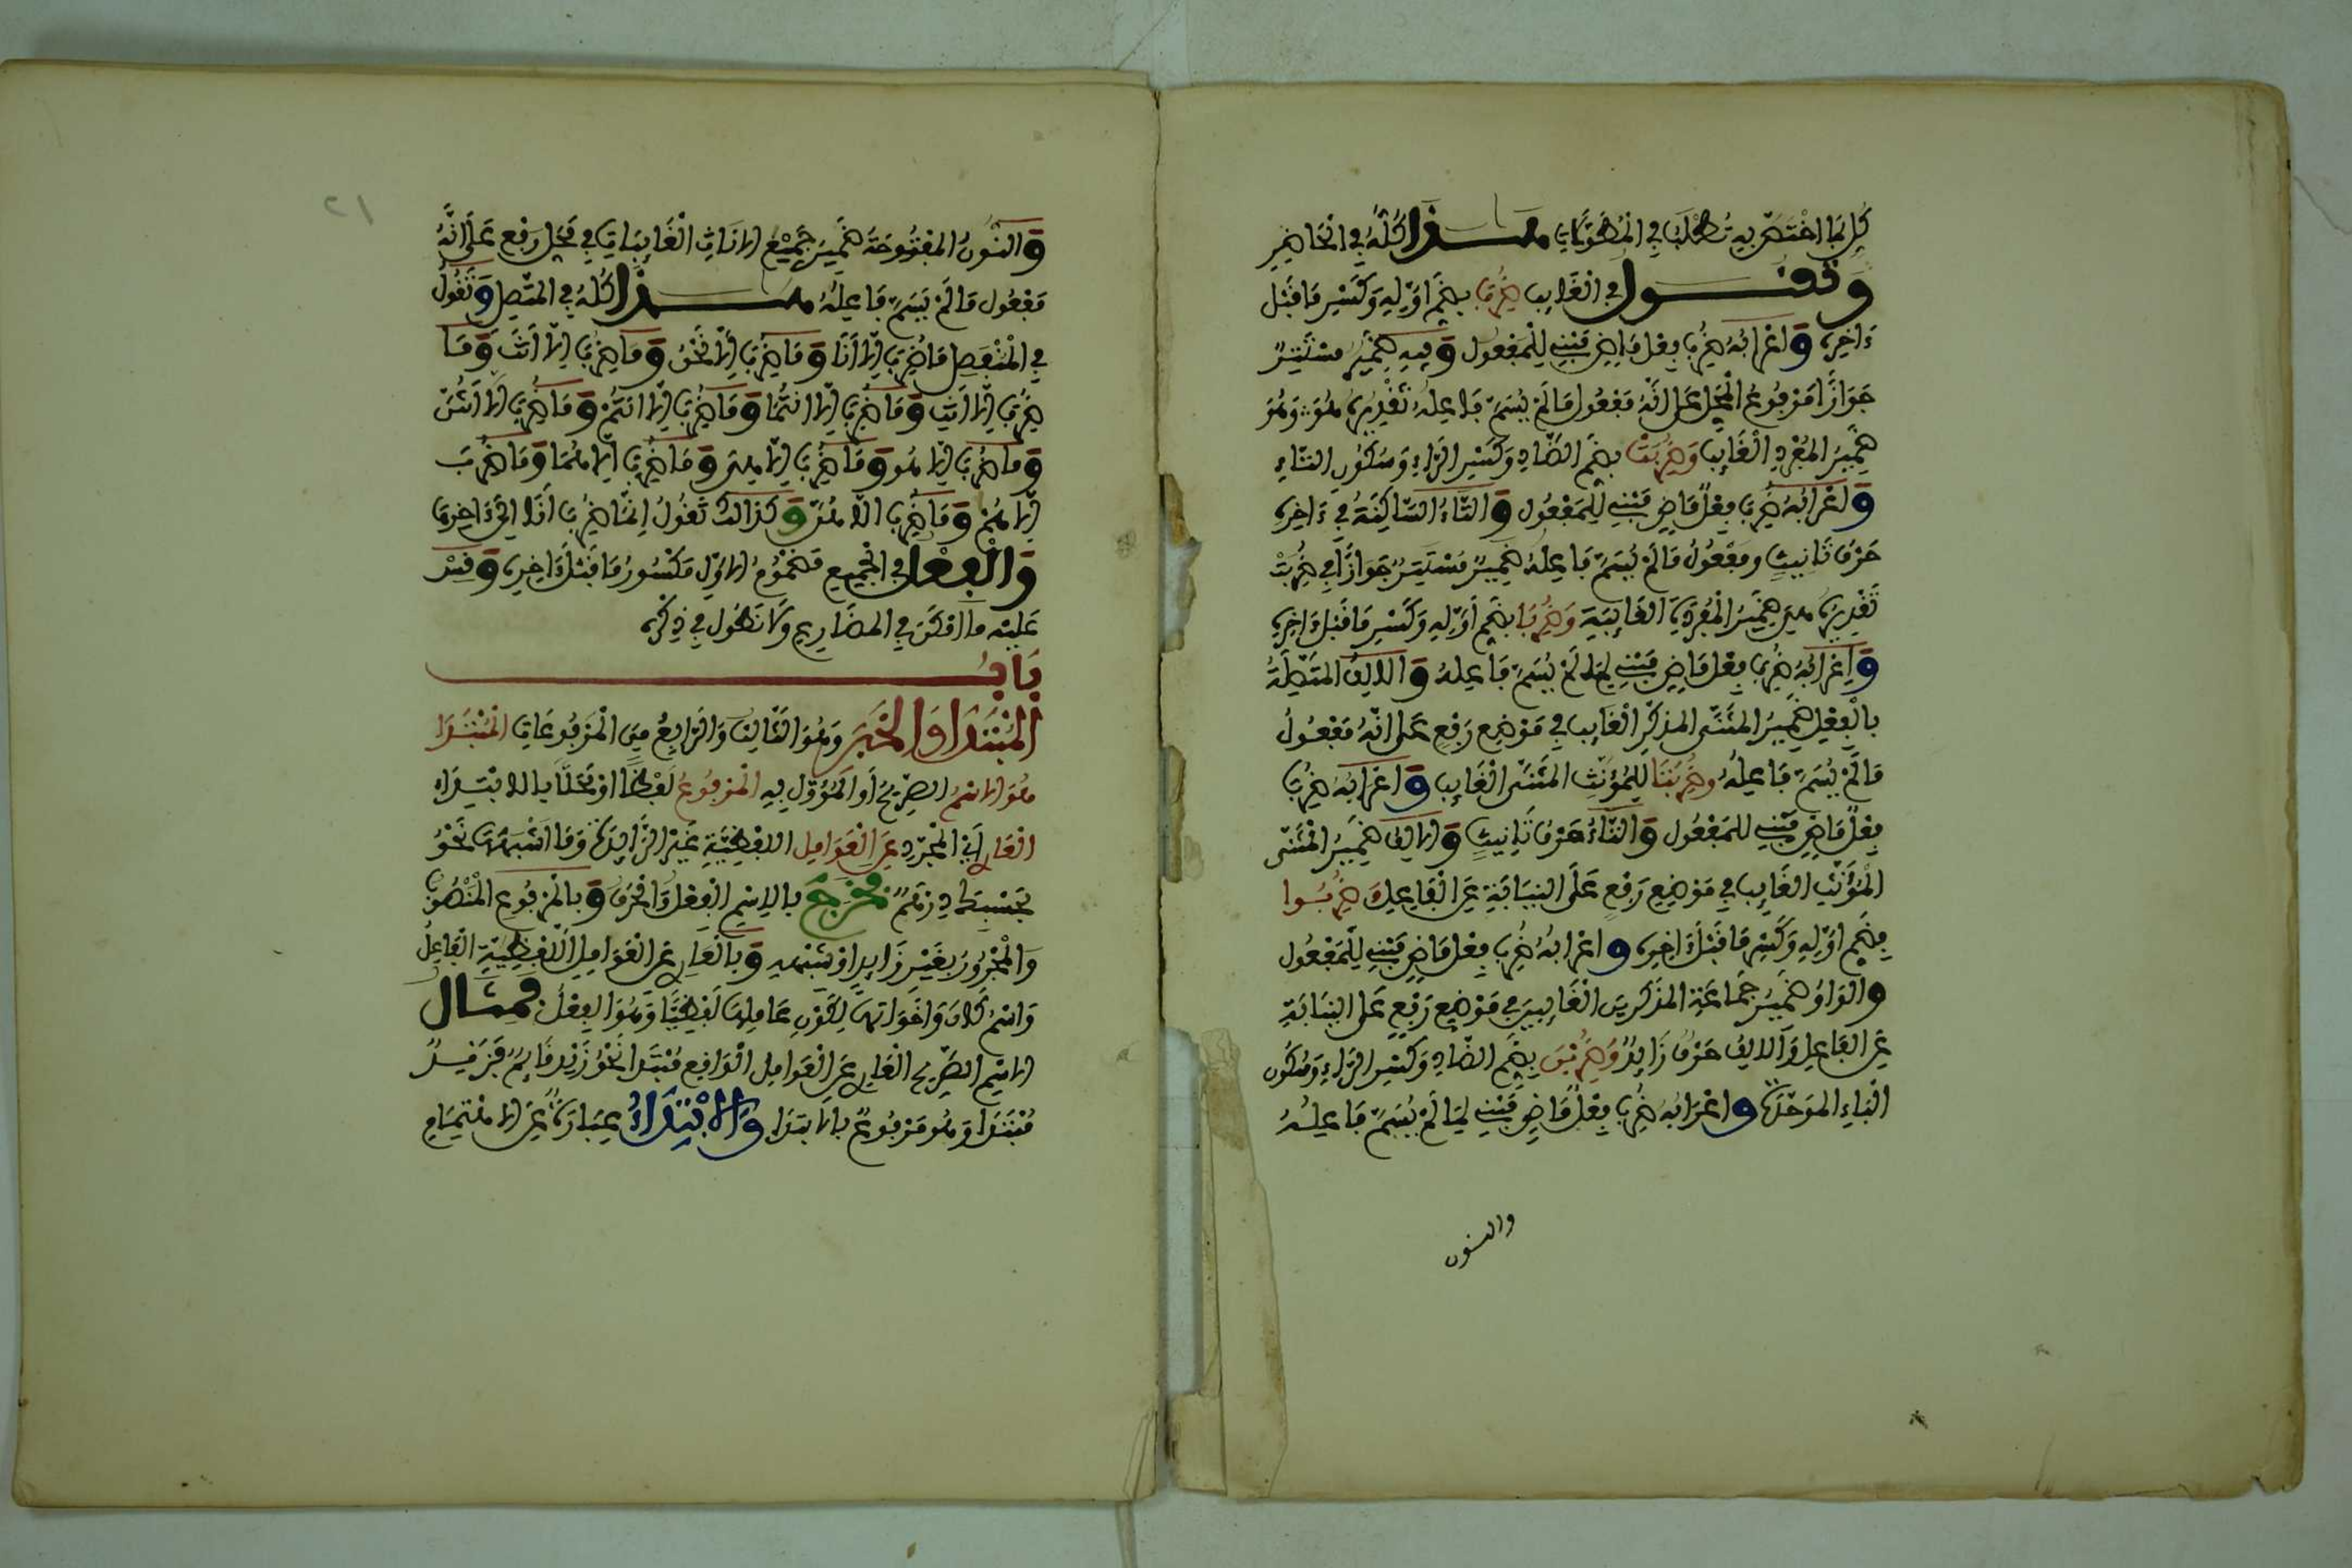 كل ما اختصر به تطلب في المطولات هـذا كله في الحاضر
وتقـول في الغايب ضرب بضم اوله وكسر ما قبل
ءاخره واعرابه ضرب فعل ماض مبني للمفعول وفيه ضمير مستتر
جوازا مرفوع المحل على انه مفعول ما لم يسم فاعله تقديره هو وهو
ضمير المفرد الغايب وضربت بضم الضاد وكسر الراء وسكون التاء
واعرابه ضرب فعل ماض مبني للمفعول والتاء الساكنة في ءاخره
حرف تانيث ومفعول ما لم يسم فاعله ضمير مستتر جوازا في ضربت
تقديره هي ضمير المفردة الغايبة وضربا بضم اوله وكسر ما قبل ءاخره
واعرابه ضرب فعل ماض مبني لما لم يسم فاعله والالف المتصلة
بالفعل ضمير المثنى المذكر الغايب في موضع رفع على انه مفعول
ما لم يسم فاعله وضربتا للمؤنث المثنى الغايب واعرابه ضرب
فعل ماض مبني للمفعول والتاء حرف تانيث والالف ضمير المثنى
المؤنث الغايب في موضع رفع على النيابة عن الفاعل وضربوا
بضم اوله وكسر ما قبل ءاخره واعرابه ضرب فعل ماض مبني للمفعول
والواو ضمير جماعة المذكرين الغايبين في موضع رفع على النيابة
عن الفاعل والالف حرف زايد وضربن بضم الضاد وكسر الراء وسكون
الباء الموحدة واعرابه ضرب فعل ماض مبني لما لم يسم فاعله
والنون
٢١
والنون المفتوحة ضمير جميع الاناث الغايبات في محل رفع على انه
مفعول ما لم يسم فاعله هـذا كله في المتصل وتقول
في المنفصل ما ضرب الا انا وما ضرب الا نحن وما ضرب الا انت وما
ضرب الا انت وما ضرب الا انتما وما ضرب الا انتم وما ضرب الا انتن
وما ضرب الا هو وما ضرب الا هي وما ضرب الا هما وما ضرب
الا هم وما ضرب الا هن وكذالك تقول انما ضرب انا الى ءاخرها
والفعل في الجميع مضموم الاول مكسور ما قبل ءاخره وقس
عليه ما امكن في المضارع ولا نطول في ذكره
بـاب
المبتدا والخبر وهو الثالث والرابع من المرفوعات المبتدا
هو الاسم الصريح او المؤول به المرفوع لفظا او محلا بالابتداء
العاري اي المجرد عن العوامل اللفظية غير الزايدة وما اشبهها نحو
بحسبك درهم فخرج بالاسم الفعل والحرف وبالمرفوع المنصوب
والمجرور بغير زايد او شبهه وبالعاري عن العوامل اللفظية الفاعل
واسم كان واخواتها لكون عاملها لفظيا وهو الفعل فمثـال
الاسم الصريح العاري عن العوامل الواقع مبتدا نحو زيد قايم فزيد
مبتدا وهو مرفوع بالابتدا والابتداء عبارة عن الاهتمام